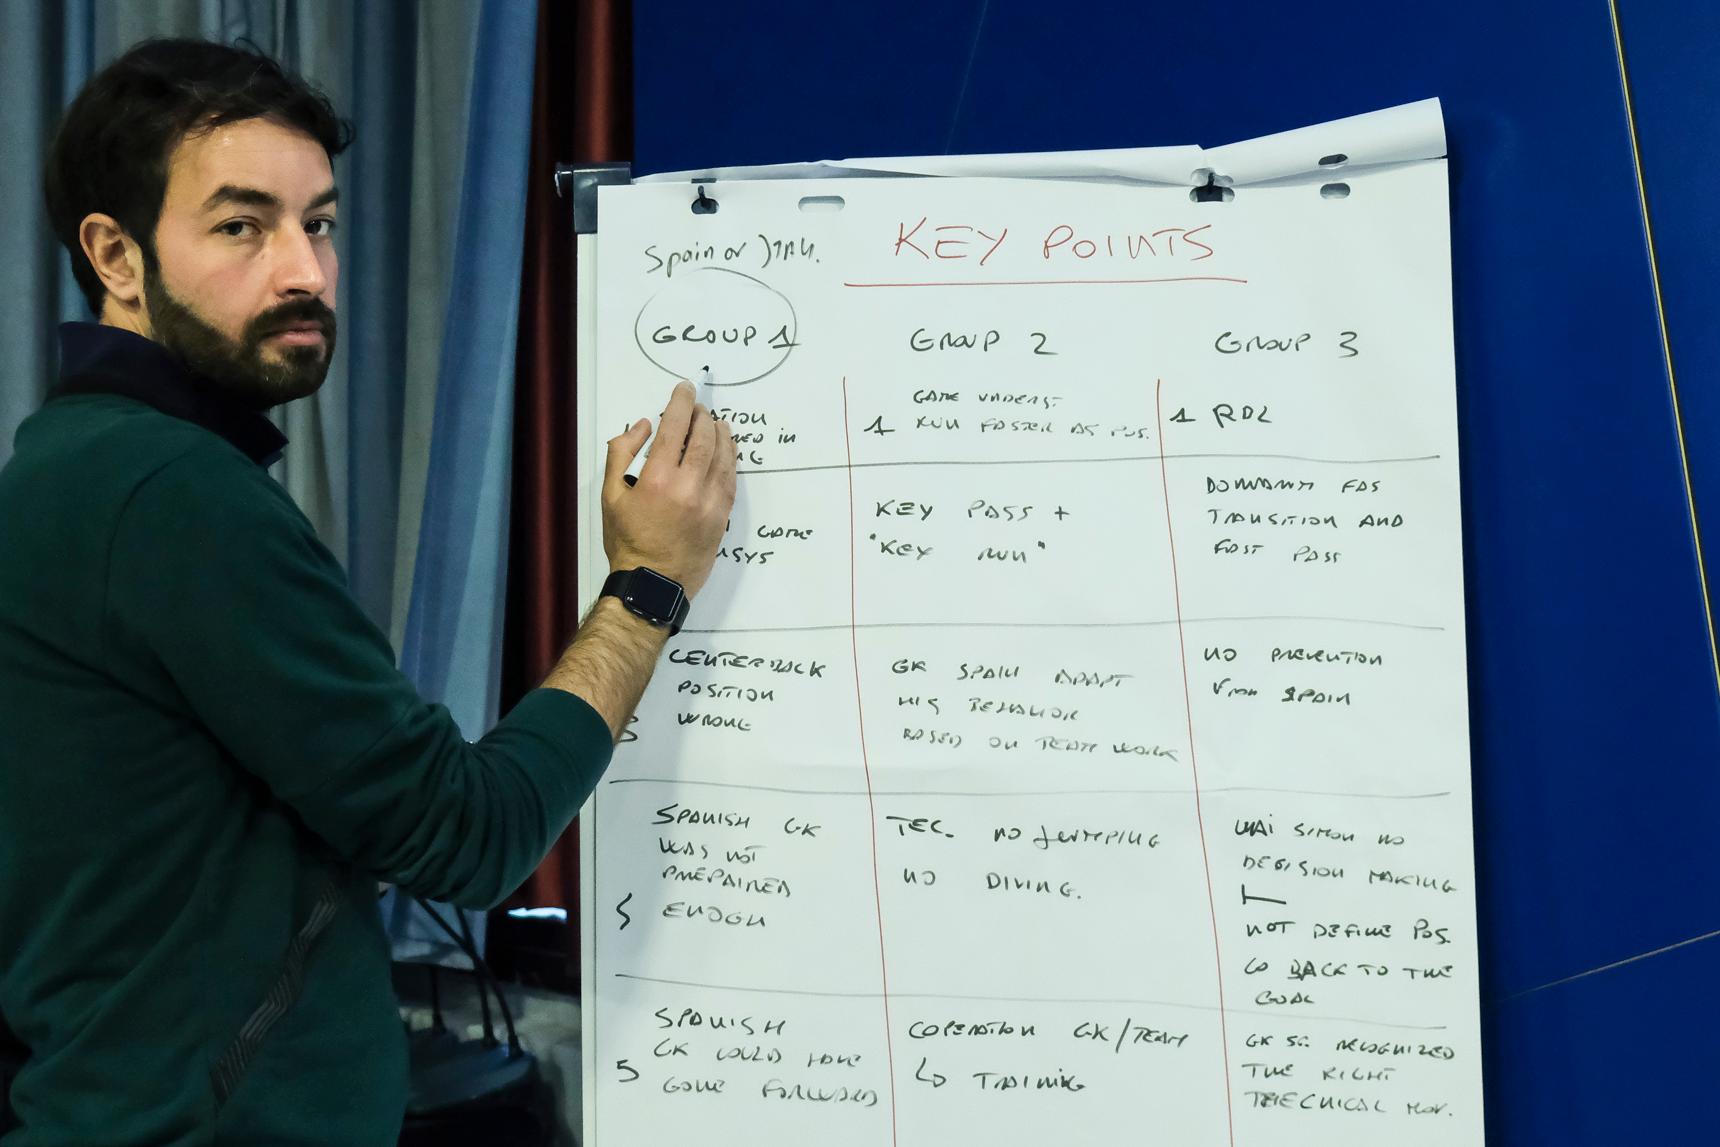 Spain or ITAL.
KEY POINTS
GROUP 1
GROUP 2
GROUP 3
ATION
in
G
1 GAME UNDERST
RUN FASTER AS POS.
1 RDL
GAME
KEY PASS +
"KEY RUN"
DOMINANT FAS
TRANSITION AND
FAST PASS
CENTERBACK
POSITION
WRONG
GK SPAIN ADAPT
HIS BEHAVIOR
BASED ON TEAM WORK
NO PREVENTION
From SPAIN
SPANISH GK
WAS NOT
PREPAIRED
ENOGH
TEC. NO JUMPING
NO DIVING.
UNAI SIMON NO
DECISION MAKING
NOT DEFINE POS.
GO BACK TO THE
GOAL
5 SPANISH
GK COULD HAVE
GONE FORWARD
COPERATION GK/TEAM
TRAINING
GK RECOGNIZED
THE RIGHT
THECNICAL MOV.